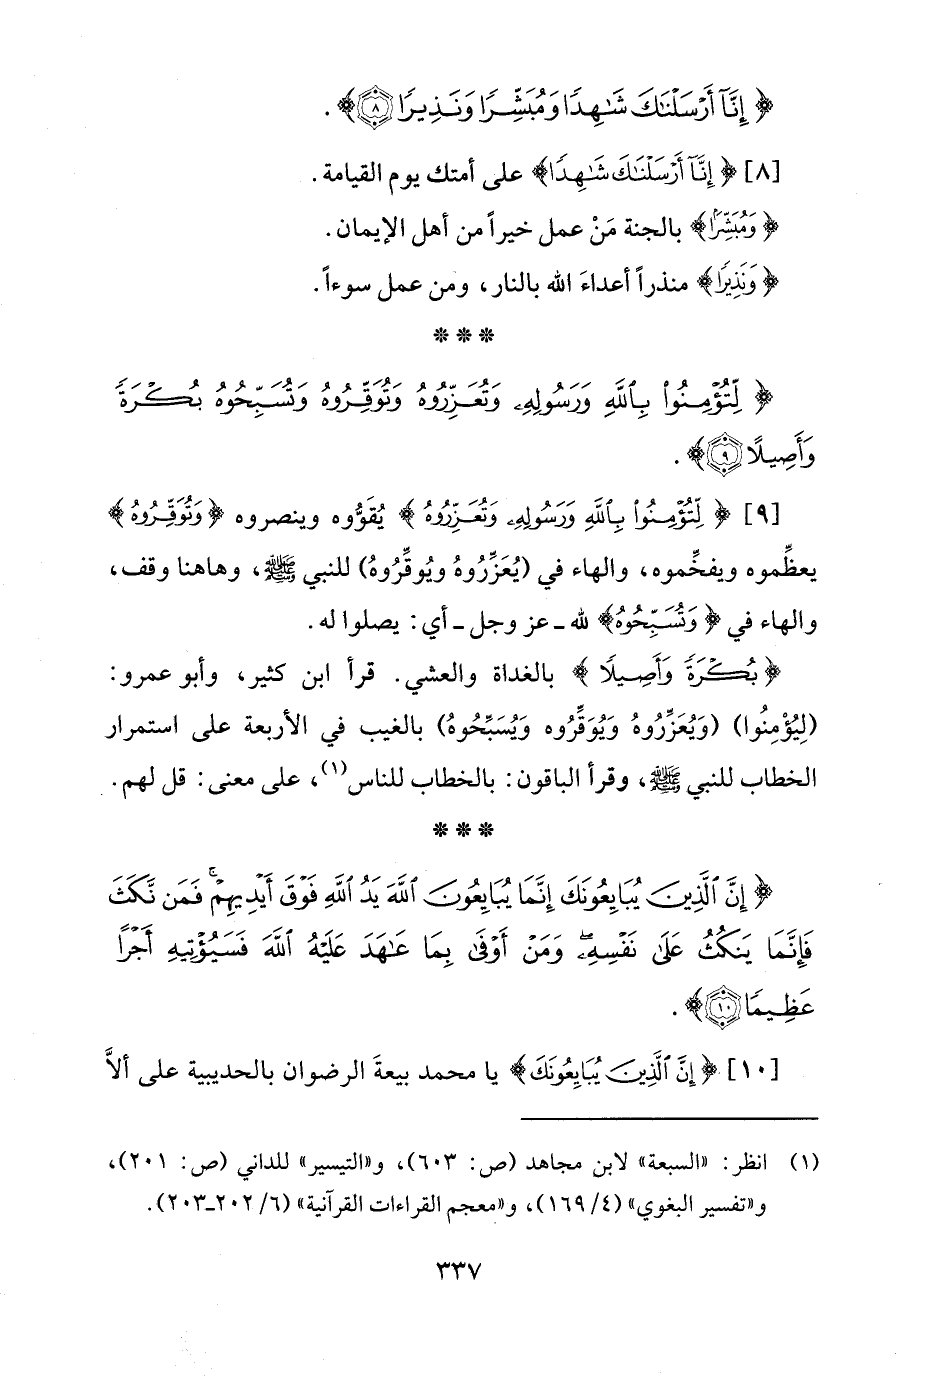 ﴿ إِنَّآ أَرْسَلْنَٰكَ شَٰهِدًا وَمُبَشِّرًا وَنَذِيرًا ٨﴾ .
[٨] ﴿ إِنَّآ أَرْسَلْنَٰكَ شَٰهِدًا﴾ على أمتك يوم القيامة .
﴿ وَمُبَشِّرًا﴾ بالجنة مَنْ عمل خيراً من أهل الإيمان .
﴿ وَنَذِيرًا﴾ منذراً أعداءَ الله بالنار، ومن عمل سوءاً .
* * *
﴿ لِّتُؤْمِنُوا۟ بِٱللَّهِ وَرَسُولِهِۦ وَتُعَزِّرُوهُ وَتُوَقِّرُوهُ وَتُسَبِّحُوهُ بُكْرَةً
وَأَصِيلًا ٩﴾ .
[٩] ﴿ لِّتُؤْمِنُوا۟ بِٱللَّهِ وَرَسُولِهِۦ وَتُعَزِّرُوهُ ﴾ يُقَوُّوه وينصروه ﴿ وَتُوَقِّرُوهُ ﴾
يعظِّموه ويفخِّموه، والهاء في (يُعَزِّرُوهُ ويُوقِّرُوهُ) للنبي ﷺ، وهاهنا وقف،
والهاء في ﴿ وَتُسَبِّحُوهُ﴾ لله ـ عز وجل ـ أي: يصلوا له.
﴿ بُكْرَةً وَأَصِيلًا ﴾ بالغداة والعشي. قرأ ابن كثير، وأبو عمرو:
(لِيُؤْمِنُوا) (وَيُعَزِّرُوهُ وَيُوَقِّرُوه وَيُسَبِّحُوهُ) بالغيب في الأربعة على استمرار
الخطاب للنبي ﷺ، وقرأ الباقون: بالخطاب للناس(١)، على معنى: قل لهم.
* * *
﴿ إِنَّ ٱلَّذِينَ يُبَايِعُونَكَ إِنَّمَا يُبَايِعُونَ ٱللَّهَ يَدُ ٱللَّهِ فَوْقَ أَيْدِيهِمْ ۚ فَمَن نَّكَثَ
فَإِنَّمَا يَنكُثُ عَلَىٰ نَفْسِهِۦ ۖ وَمَنْ أَوْفَىٰ بِمَا عَٰهَدَ عَلَيْهُ ٱللَّهَ فَسَيُؤْتِيهِ أَجْرًا
عَظِيمًا ١٠﴾ .
[١٠] ﴿ إِنَّ ٱلَّذِينَ يُبَايِعُونَكَ﴾ يا محمد بيعةَ الرضوان بالحديبية على ألاَّ
(١) انظر: «السبعة» لابن مجاهد (ص: ٦٠٣)، و«التيسير» للداني (ص: ٢٠١)،
و«تفسير البغوي» (٤/ ١٦٩)، و«معجم القراءات القرآنية» (٦/ ٢٠٢ـ٢٠٣).
٣٣٧